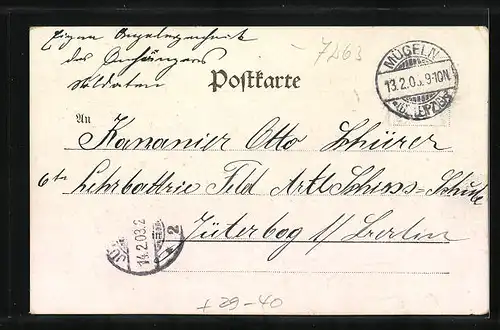 Eigene Angelegenheit
des Empfängers
Soldaten
7263
MÜGELN
13.2.03. 9-10N.
(BZ. LEIPZIG)
Postkarte
An
Kanonier Otto Schürer
6te Lehrbattrie Feld Artl Schiess-Schule
Jüterbog b/ Berlin
14.2.03.
2
+ 29-40